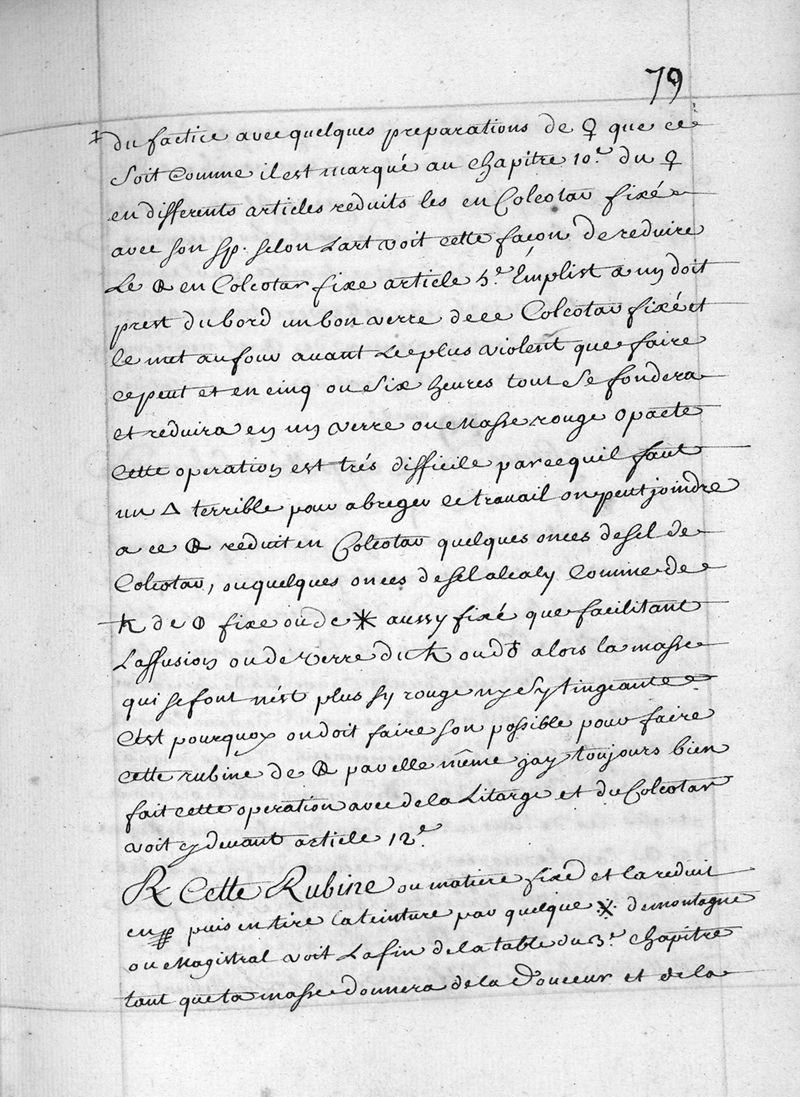 79
du factice avec quelques preparations de ♀ que ce
soit Comme il est marqué au chapitre 10.e du ♀
en differents articles reduits les en Colcotar fixé
avec son sp. selon Lart voit cette façon de reduire
Le en Colcotar fixe article 5.e Emplist a un doit
prest du bord un bon verre de ce Colcotar fixé et
le met au four avant Le plus violent que faire
ce peut et en cinq ou Six heures tout Se fondera
et reduira en un verre ou Masse rouge opacte
Cette operation est trés difficile parcequil faut
un △ terrible pour abreger ce travail on peut joindre
a ce reduit en Colcotar quelques onces de sel de
Colcotar, ou quelques onces de sel alcaly Comme de
de fixe ou de ✶ aussy fixé que facilitant
Laffusion ou de verre du ou d♁ alors la masse
qui se font n'est plus sy rouge ny sy tingeante
C'est pourquoy on doit faire son possible pour faire
cette rubine de par elle même jay toujours bien
fait cette operation avec de la Litarge et du Colcotar
voit cy devant article 12.e
℞ Cette Rubine ou matiere fixe et la reduit
en puis en tire la teinture par quelque de montagne
ou Magistral voit La fin de la table du 3.e chapitre
tant que ta masse donnera de la Douceur et de la